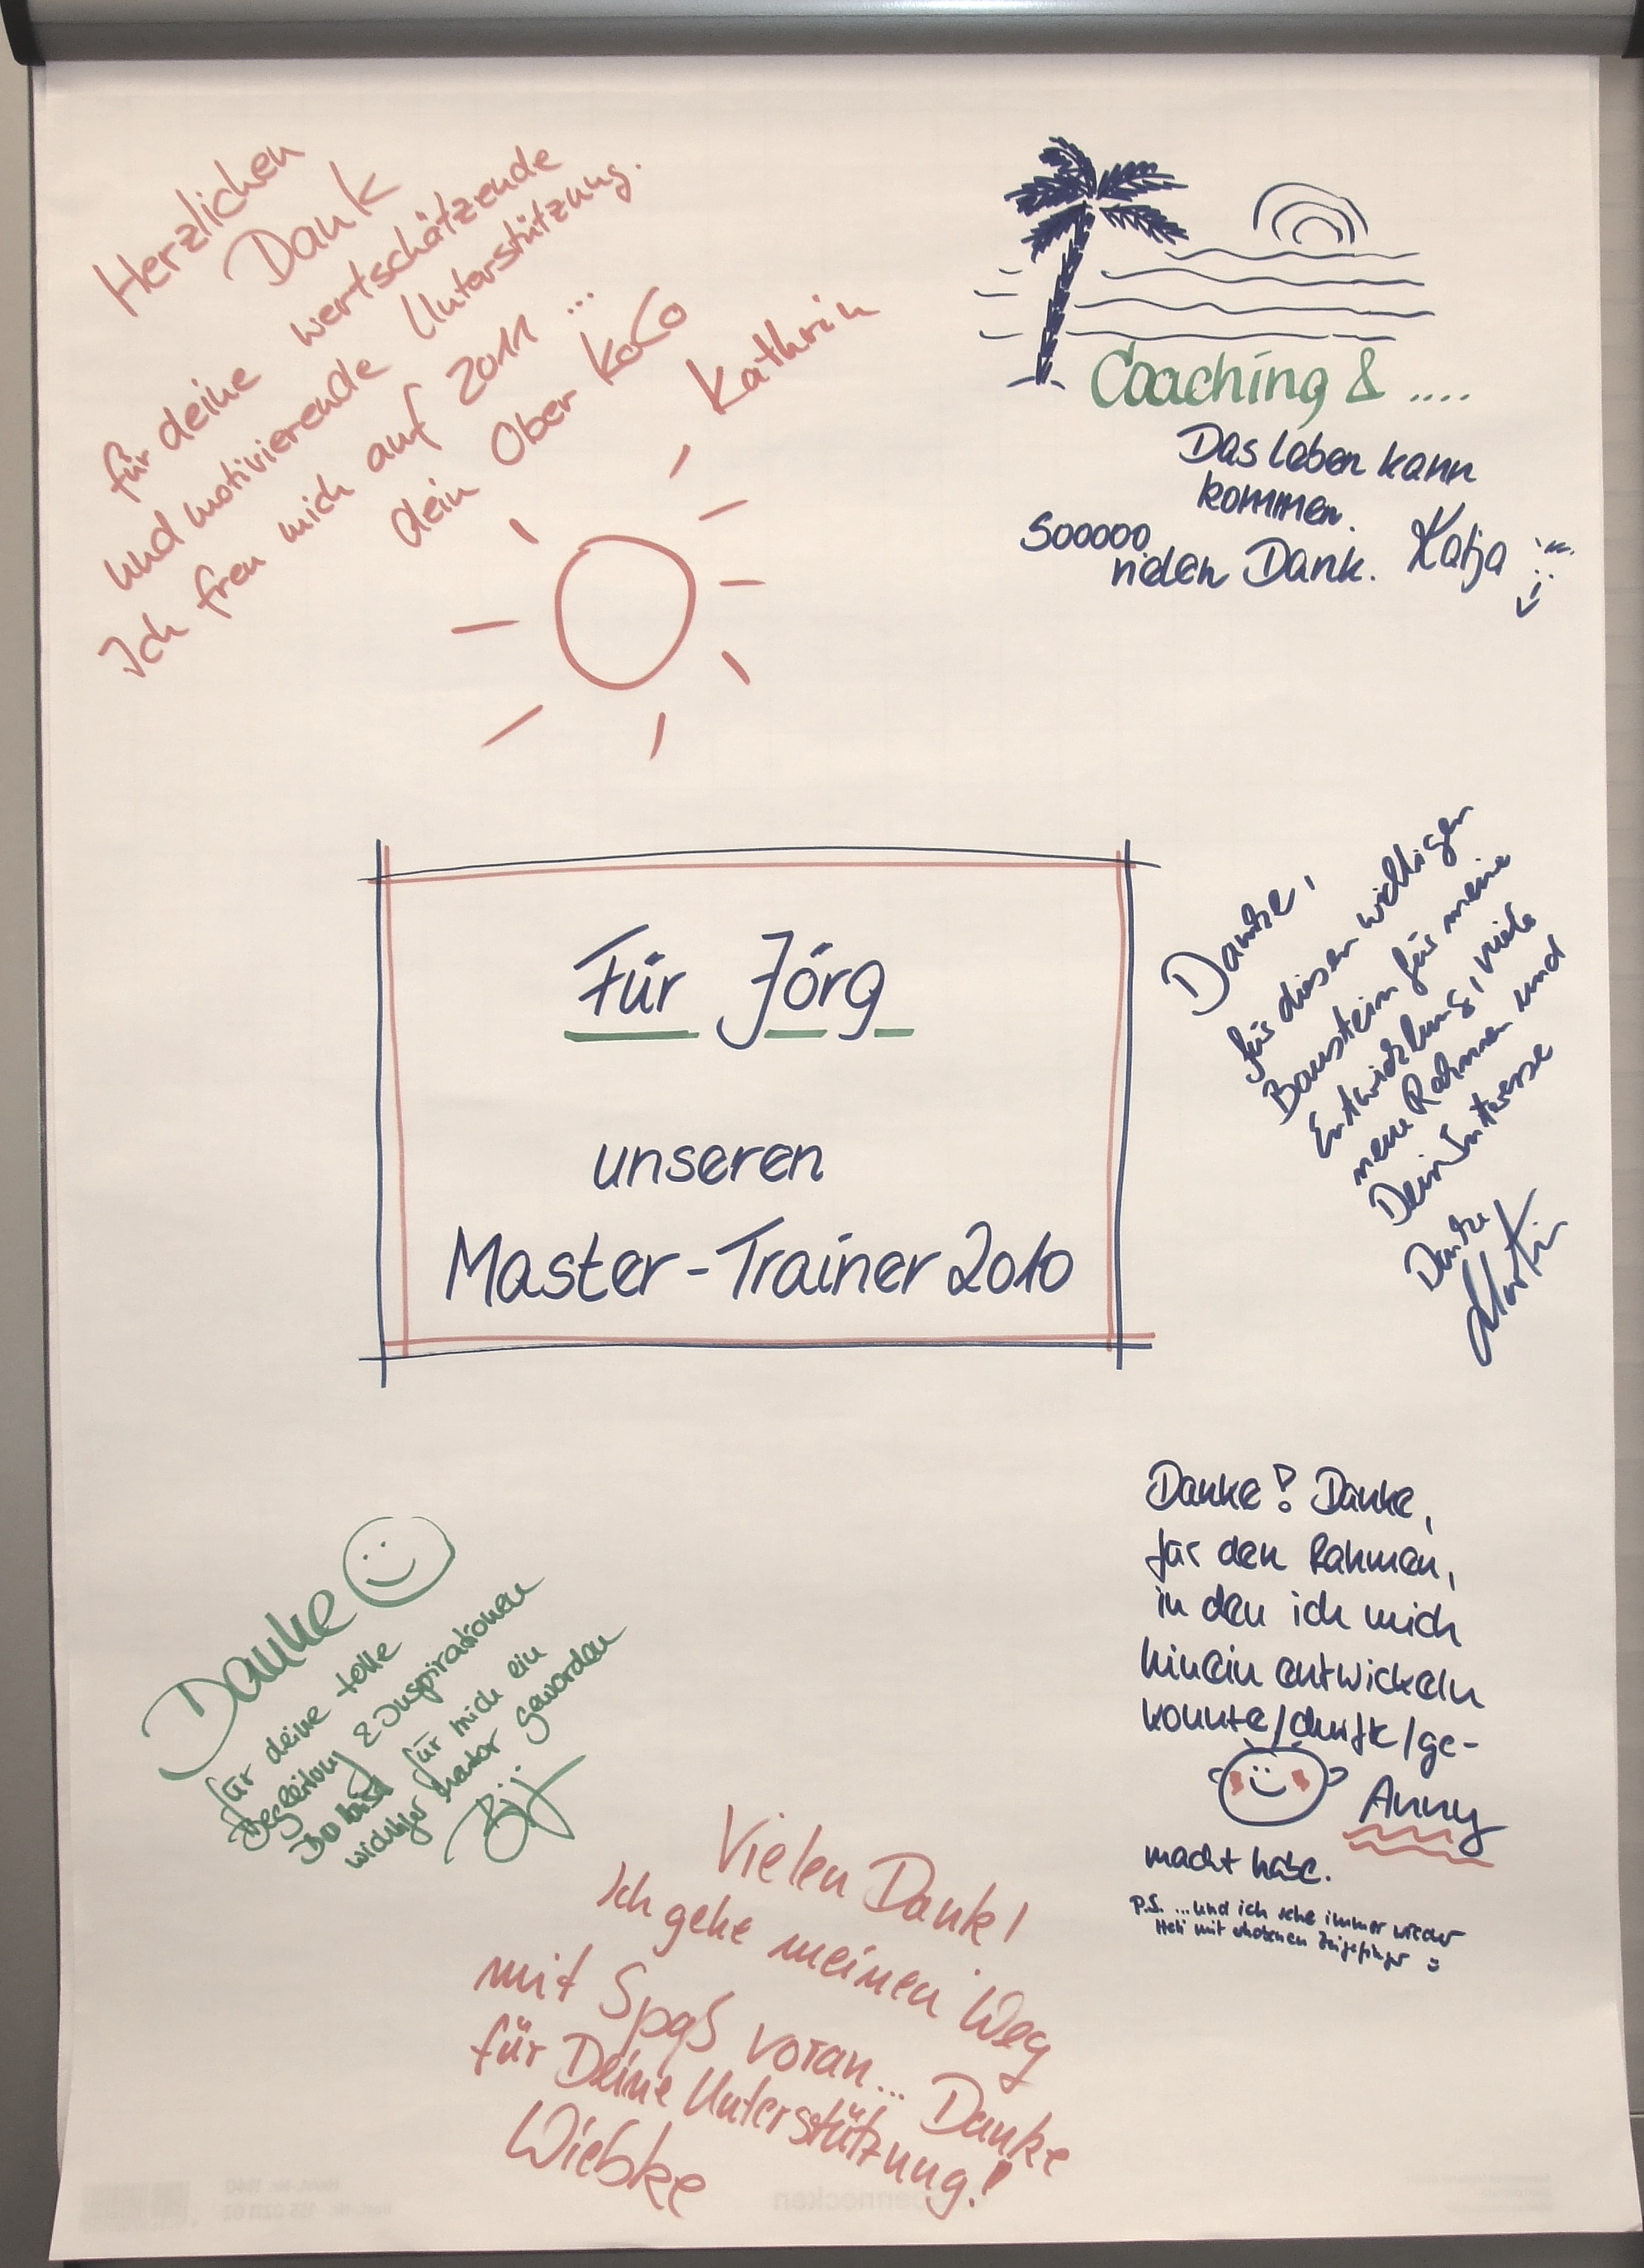 Herzlichen
Dank
für deine wertschätzende
und motivierende Unterstützung.
Ich freu mich auf 2011 ...
dein Ober KoCo
Kathrin
Coaching & ....
Das Leben kann
kommen.
Sooooo
vielen Dank. Katja
Für Jörg
unseren
Master-Trainer 2010
Danke,
für diesen wichtigen
Baustein für meine
Entwicklung, viele
neue Rahmen und
Dein Interesse
Danke
Martin
Danke! Danke,
für den Rahmen,
in den ich mich
hinein entwickeln
konnte/durfte/ge-
Anny
macht habe.
P.S. ...und ich sehe immer wieder
mit erhobenen Zeigefinger
Danke
für deine tolle
Begleitung & Inspirationen
Du bist für mich ein
wichtiger Mentor geworden
Vielen Dank!
Ich gehe meinen Weg
mit Spaß voran... Danke
für Deine Unterstützung!
Wiebke